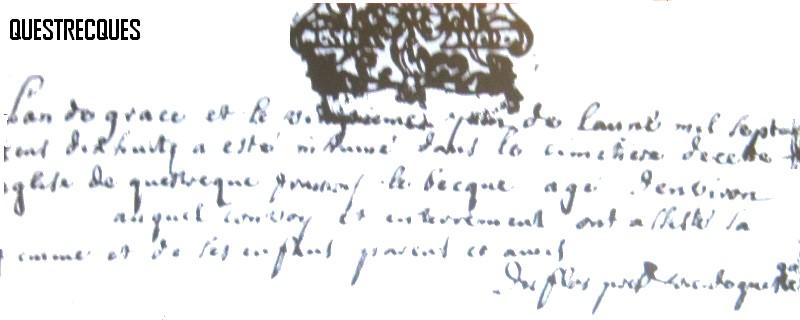 QUESTRECQUES
L'an de grace et le vingtiemes juin de l'anné mil sept
cent dixhuity a esté inhumé dans le cimetiere de cette
eglise de questreque le becque agé denviron
auquel convoy et enterrement ont assisté sa
femme et de ses enfans parens et amis